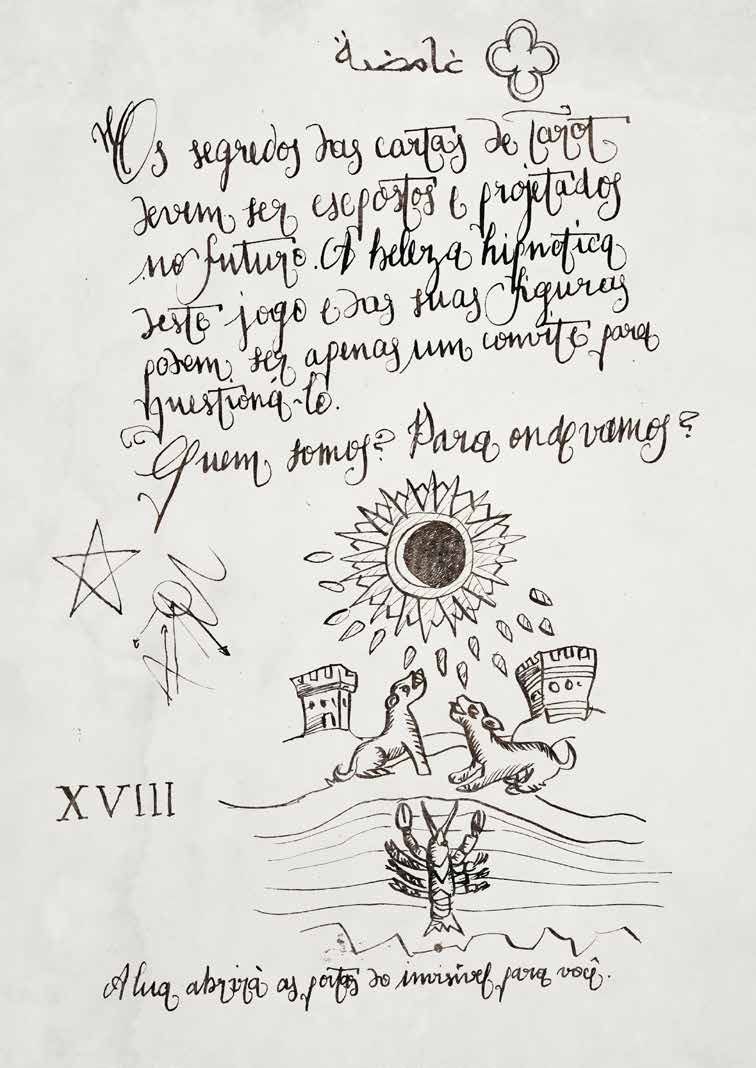 غامضة
Os segredos das cartas de tarot
devem ser escpostos e projetados
no futuro. A beleza hipnótica
deste jogo e das suas figuras
podem ser apenas um convite para
questioná-lo.
Quem somos? Para onde vamos?
XVIII
A lua abrirá as portas do invisível para você.